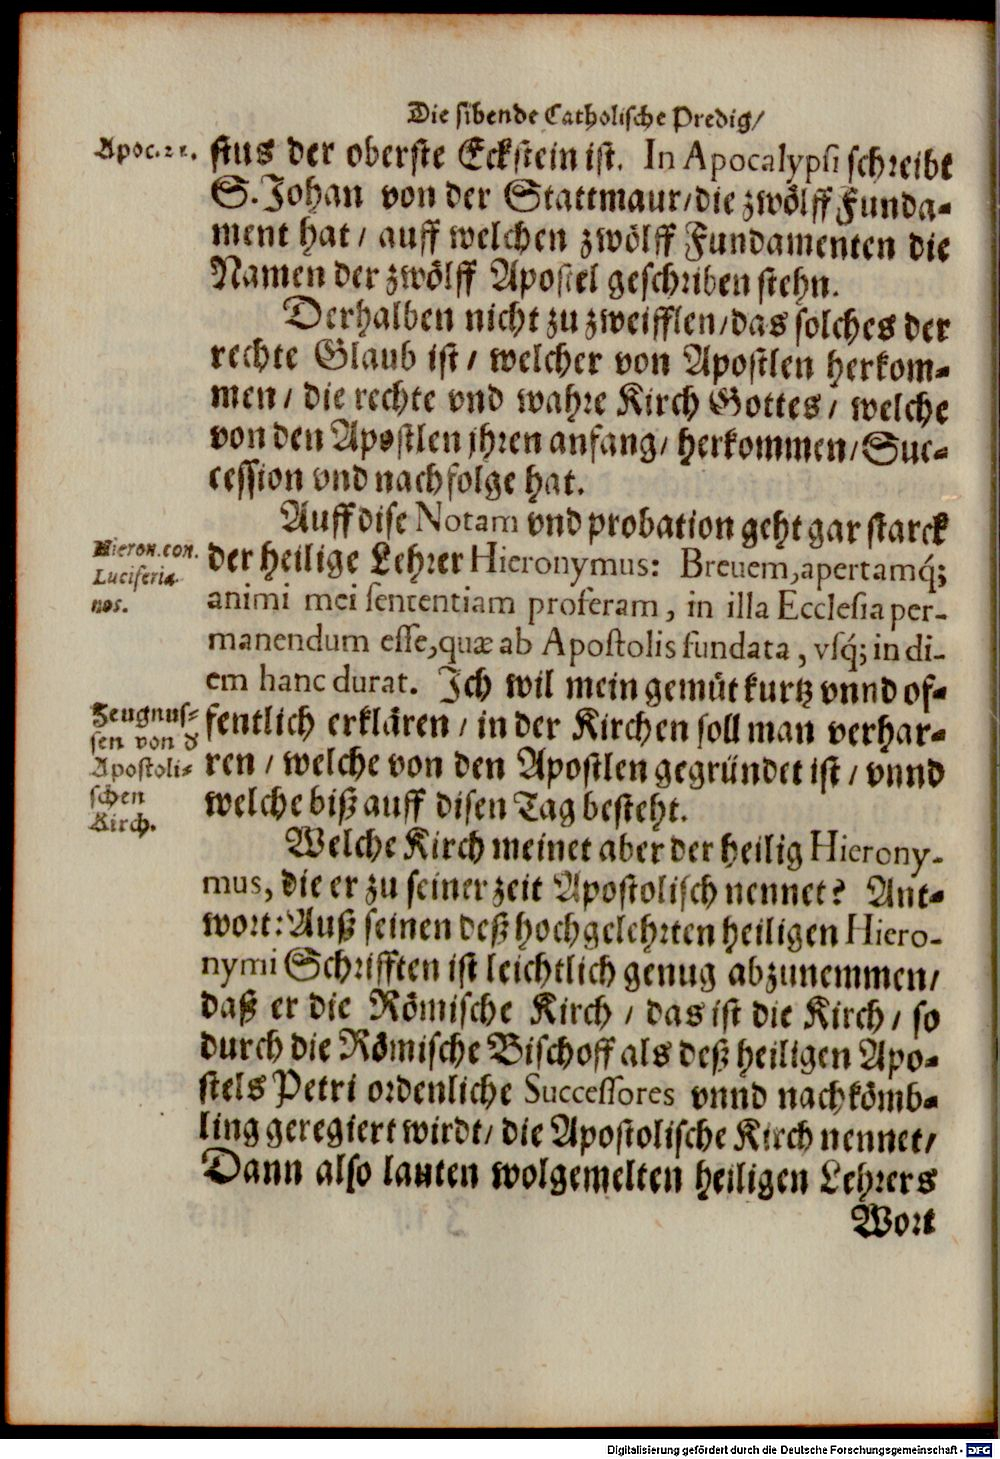 Die sibende Catholische Predig/
Apoc.21.
stus der oberste Eckstein ist. In Apocalypsi schreibt
S. Johan von der Stattmaur/ die zwölff Funda-
ment hat/ auff welchen zwölff Fundamenten die
Namen der zwölff Apostel geschriben stehn.
Derhalben nicht zu zweifflen/ das solches der
rechte Glaub ist/ welcher von Apostlen herkom-
men/ die rechte vnd wahre Kirch Gottes/ welche
von den Apostlen jhren anfang/ herkommen/ Suc-
cession vnd nachfolge hat.
Auff dise Notam vnd probation geht gar starck
Hieron. con.
Luciferia-
nos.
der heilige Lehrer Hieronymus: Breuem, apertamq́;
animi mei sententiam proferam, in illa Ecclesia per-
manendum esse, quæ ab Apostolis fundata, vsq́; in di-
em hanc durat. Ich wil mein gemüt kurtz vnnd of-
Zeugnus-
sen von d
Apostoli-
schen
Kirch.
fentlich erklären/ in der Kirchen soll man verhar-
ren/ welche von den Apostlen gegründet ist/ vnnd
welche biß auff disen Tag besteht.
Welche Kirch meinet aber der heilig Hierony-
mus, die er zu seiner zeit Apostolisch nennet? Ant-
wort: Auß seinen deß hochgelehrten heiligen Hiero-
nymi Schrifften ist leichtlich genug abzunemmen/
daß er die Römische Kirch/ das ist die Kirch/ so
durch die Römische Bischoff als deß heiligen Apo-
stels Petri ordenliche Successores vnnd nachkömb-
ling geregiert wirdt/ die Apostolische Kirch nennet/
Dann also lauten wolgemelten heiligen Lehrers
Wort
Digitalisierung gefördert durch die Deutsche Forschungsgemeinschaft - DFG